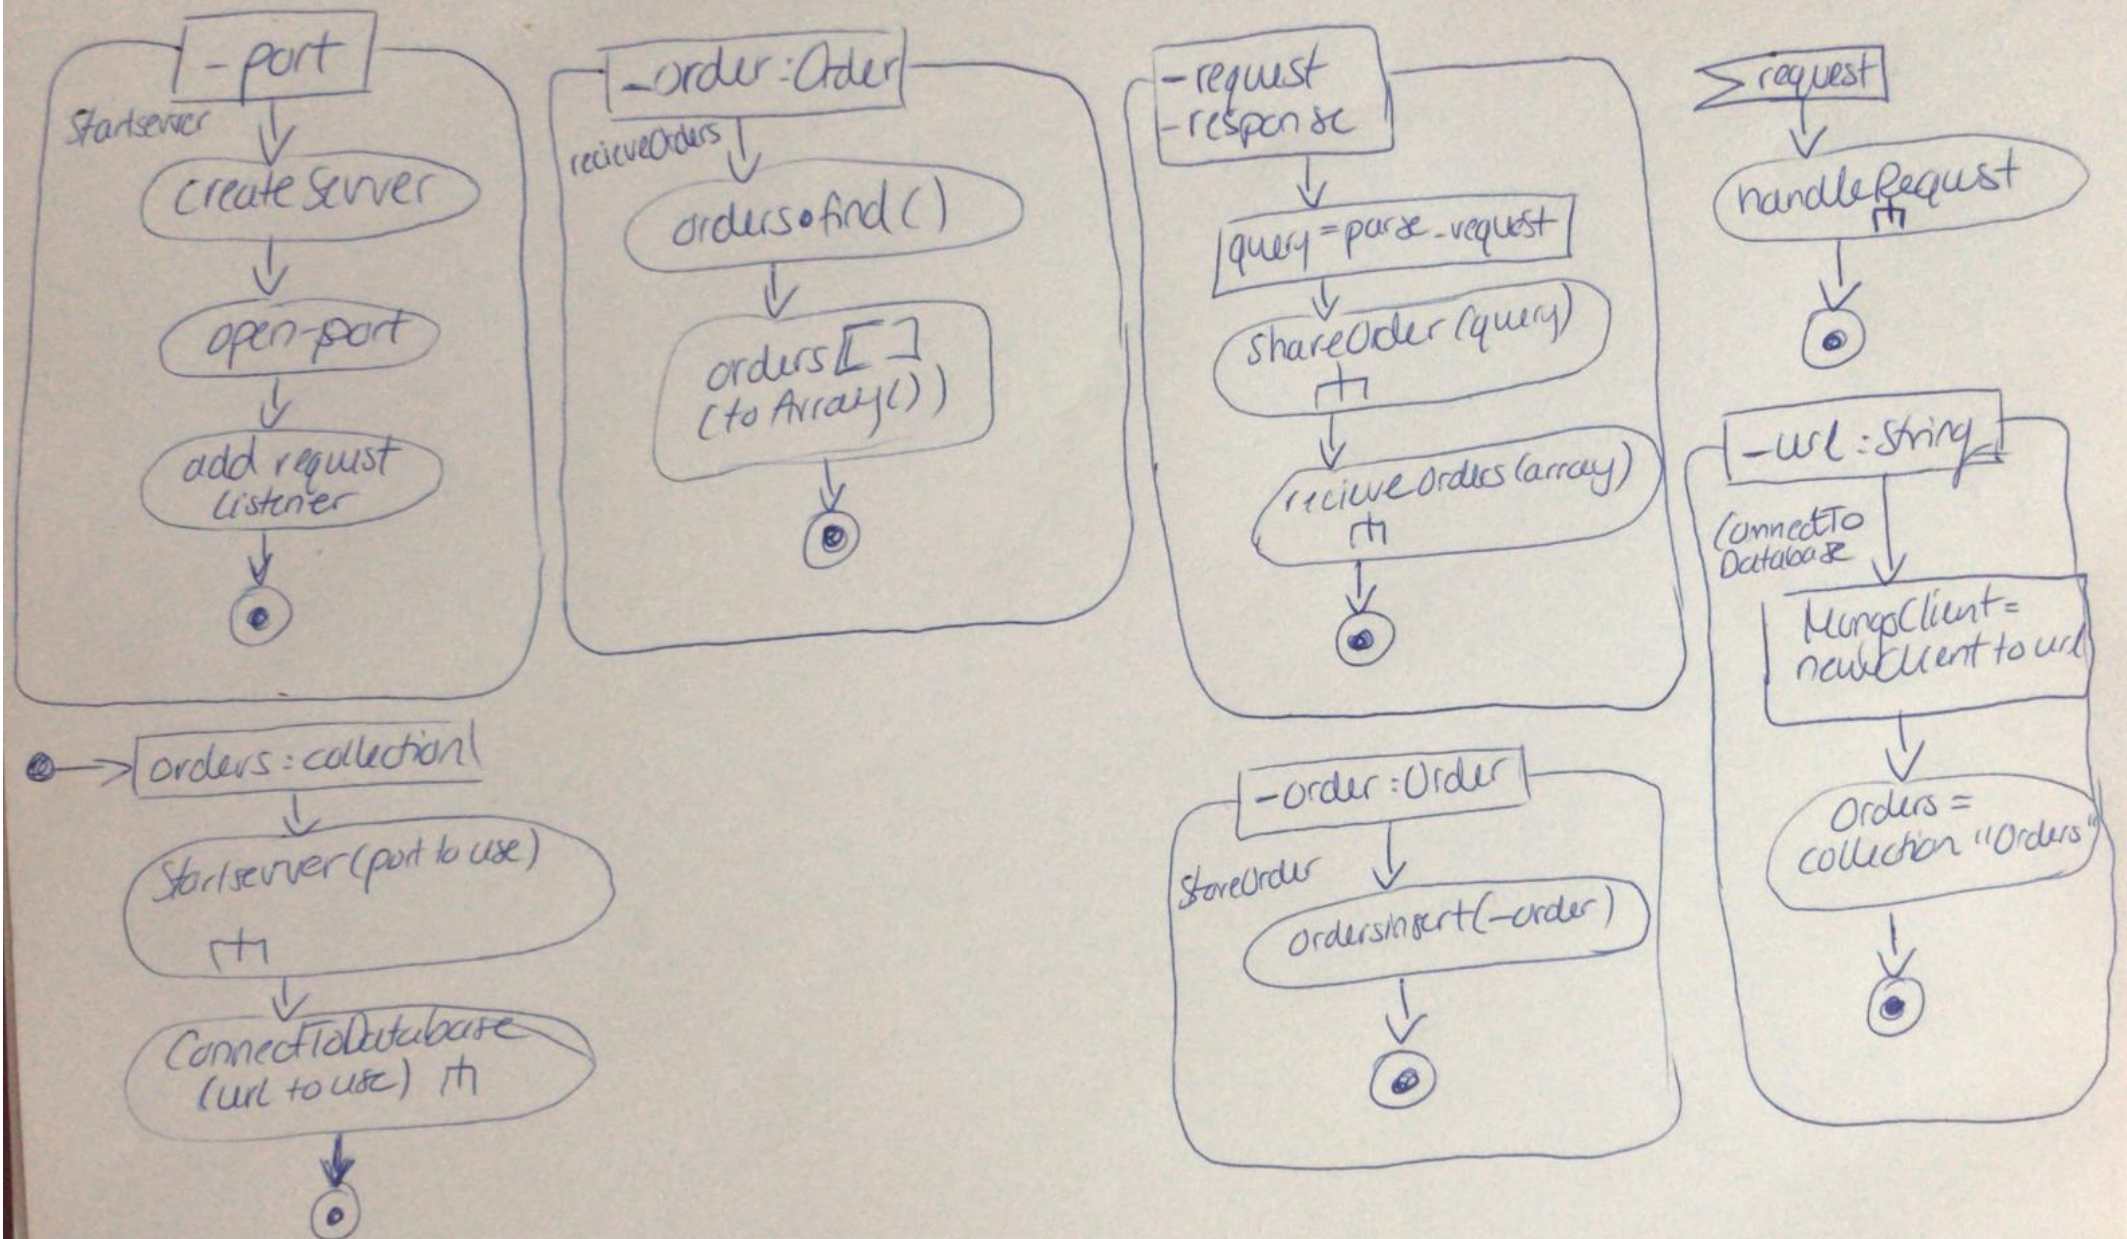 -port
Startserver
create Server
open-port
add request
listener
-order:Order
recieveOrders
orders.find()
orders[]
(toArray())
-request
-response
query=parse-request
shareOrder(query)
recieveOrders(array)
request
handleRequest
-url:String
ConnectTo
Database
MongoClient=
new client to url
Orders=
collection "Orders"
orders:collection
Startserver(port to use)
ConnectToDatabase
(url to use)
-order:Order
StoreOrder
ordersinsert(-order)